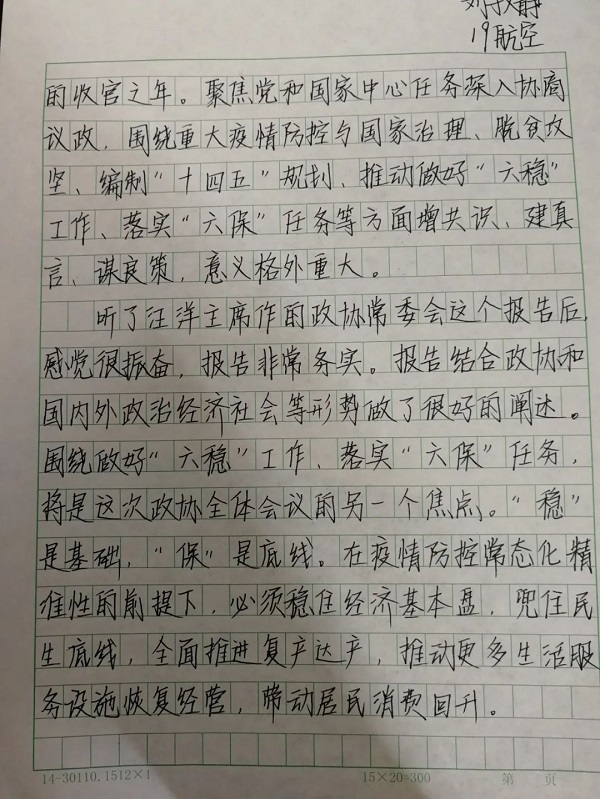 19航空
的收官之年。聚焦党和国家中心任务深入协商
议政，围绕重大疫情防控与国家治理、脱贫攻
坚、编制“十四五”规划、推动做好“六稳”
工作、落实“六保”任务等方面增共识、建真
言、谋良策，意义格外重大。
听了汪洋主席作的政协常委会这个报告后，
感觉很振奋，报告非常务实。报告结合政协和
国内外政治经济社会等形势做了很好的阐述。
围绕做好“六稳”工作、落实“六保”任务，
将是这次政协全体会议的另一个焦点。“稳”
是基础，“保”是底线。在疫情防控常态化精
准性的前提下，必须稳住经济基本盘，兜住民
生底线，全面推进复产达产，推动更多生活服
务设施恢复经营，带动居民消费回升。
14-30110.1512×1 15×20=300 第 页